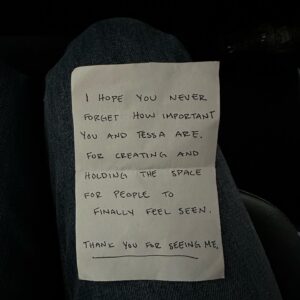 I HOPE YOU NEVER
FORGET HOW IMPORTANT
YOU AND TESSA ARE.
FOR CREATING AND
HOLDING THE SPACE
FOR PEOPLE TO
FINALLY FEEL SEEN.
THANK YOU FOR SEEING ME.